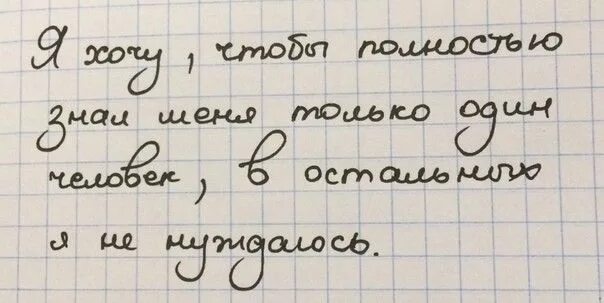 Я хочу, чтобы полностью
знал меня только один
человек, в остальных
я не нуждаюсь.